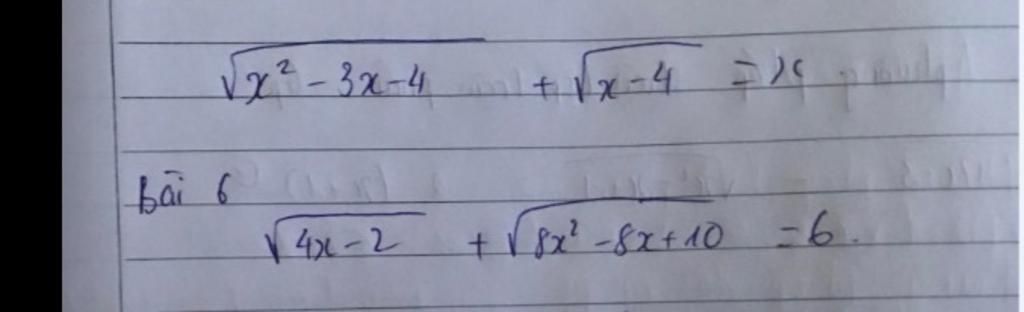 √(x² - 3x - 4) + √(x - 4) = x
Bài 6
√(4x - 2) + √(8x² - 8x + 10) = 6.